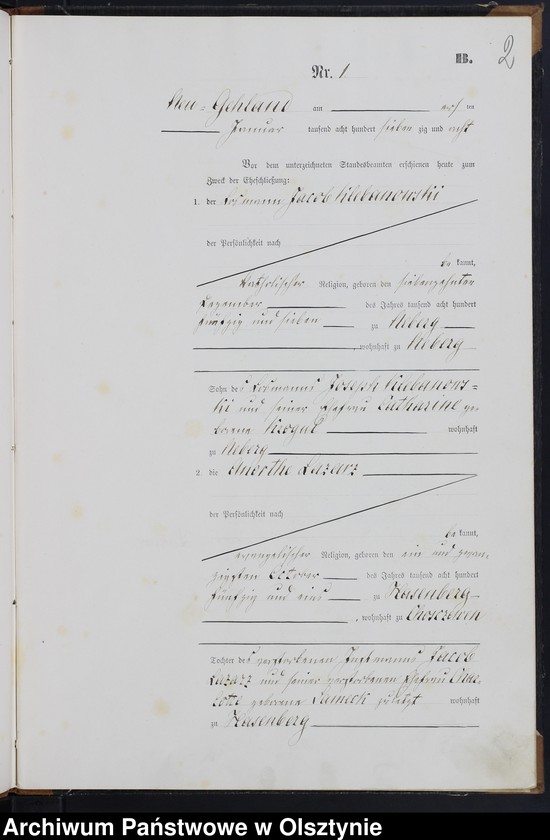 B. 2
Nr. 1
Neu-Gehland am erſten
Januar tauſend acht hundert ſieben zig und acht
Vor dem unterzeichneten Standesbeamten erſchienen heute zum
Zweck der Eheſchließung:
1. der Losmann Jacob Klebanowski
der Perſönlichkeit nach
be kannt,
katholiſcher Religion, geboren den ſiebenzehnten
Dezember des Jahres tauſend acht hundert
fünfzig und ſieben zu
, wohnhaft zu
Sohn des Losmanns Joseph Klebanows-
ki und ſeiner Ehefrau Catharine ge-
borene wohnhaft
zu
2. die Lazarz
der Perſönlichkeit nach
be kannt,
evangeliſcher Religion, geboren den ein und zwan-
zigſten October des Jahres tauſend acht hundert
fünfzig und eins zu Kasenberg
, wohnhaft zu Choszewen
Tochter des verſtorbenen Inſtmanns Jacob
Lazarz und ſeiner verſtorbenen Ehefrau Char-
lotte geborene zuletzt wohnhaft
zu Kasenberg
Archiwum Państwowe w Olsztynie